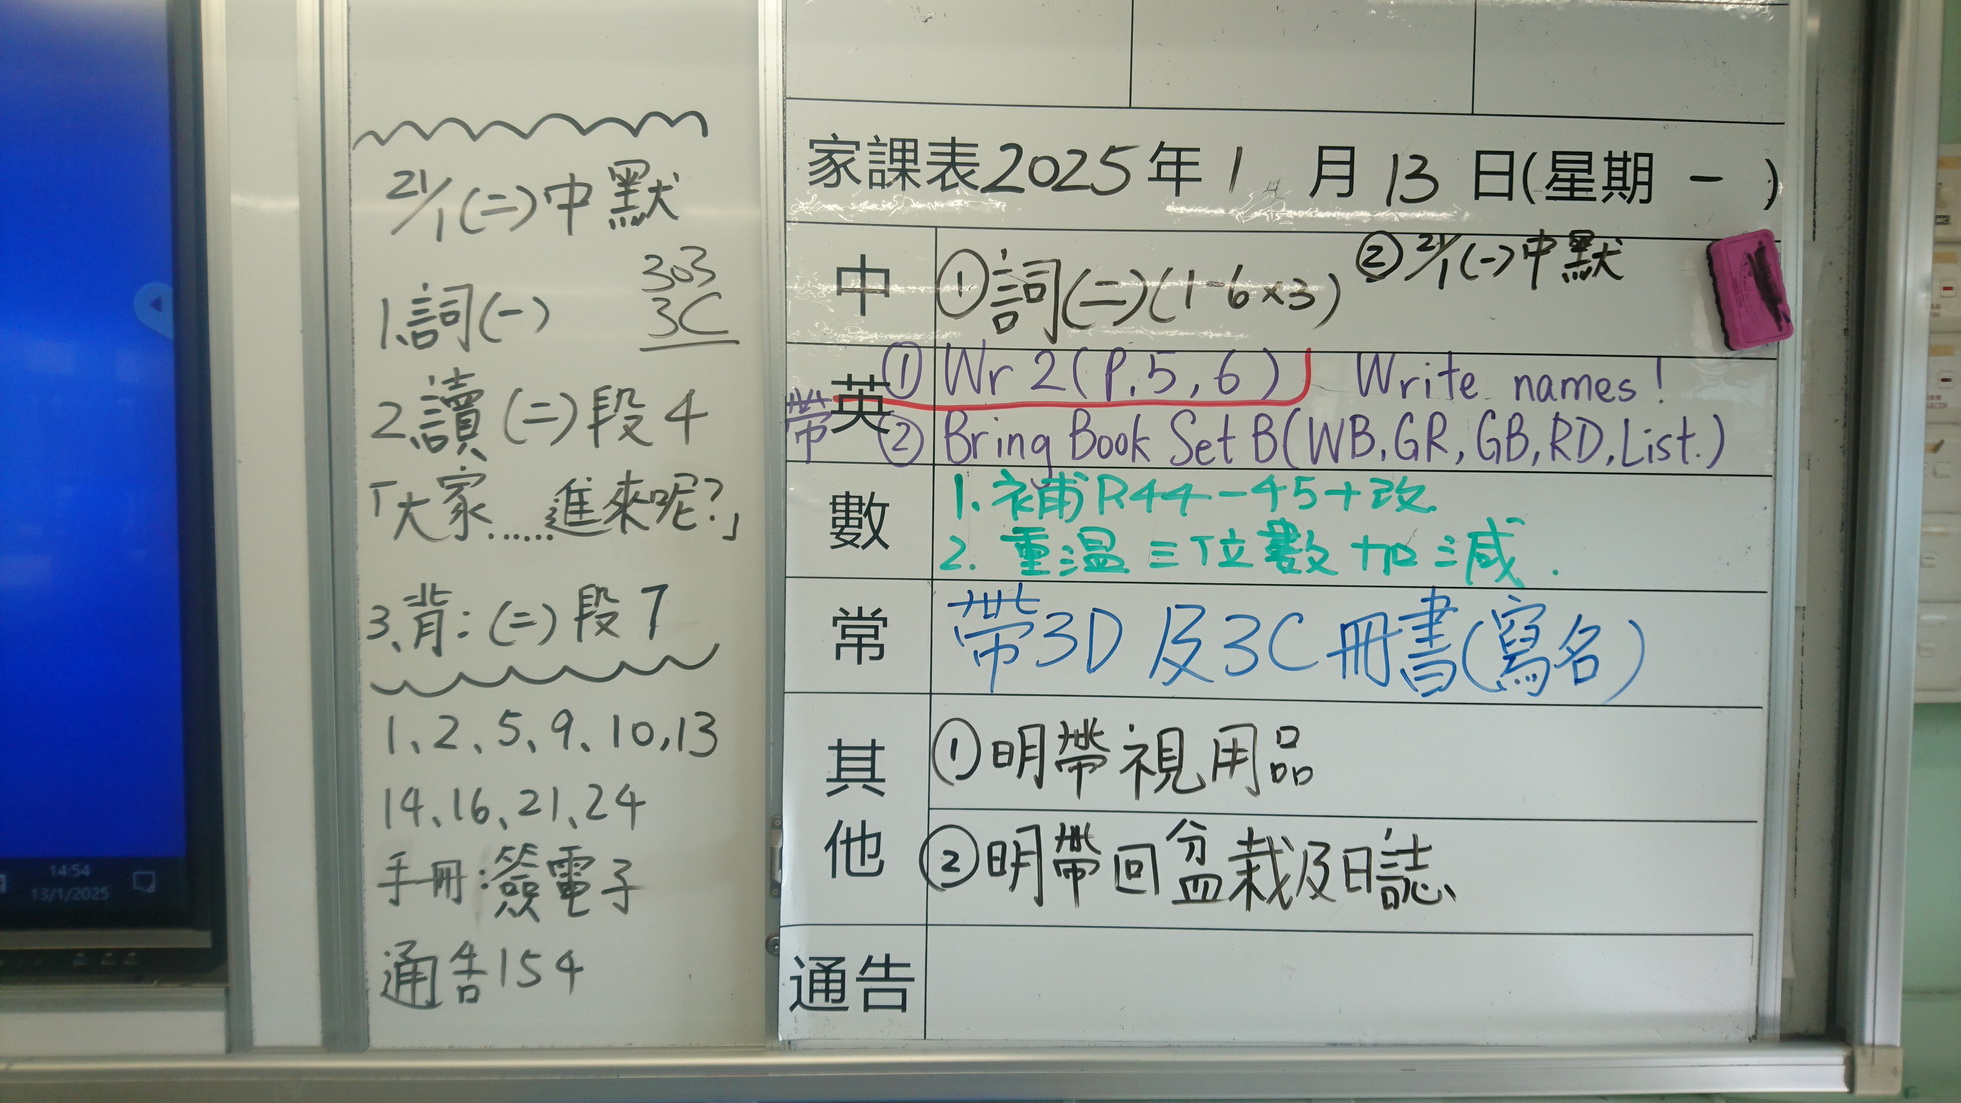 21/1(二)中默
303
1.詞(一) 3C
2.讀(二)段4
「大家......進來呢?」
3.背:(二)段7
1、2、5、9、10,13
14、16、21、24
手冊:簽電子
通告154
14:54
13/1/2025
家課表2025年1月13日(星期一)
中 ①詞(二)(1-6×3) ②21/1(一)中默
英 ①Wr 2(P.5,6) Write names!
帶 ②Bring Book Set B(WB,GR,GB,RD,List.)
數 1.補P.44-45+改
2.重温三位數加減.
常 帶3D及3C冊書(寫名)
其他 ①明帶視用品
②明帶回盆栽及日誌
通告